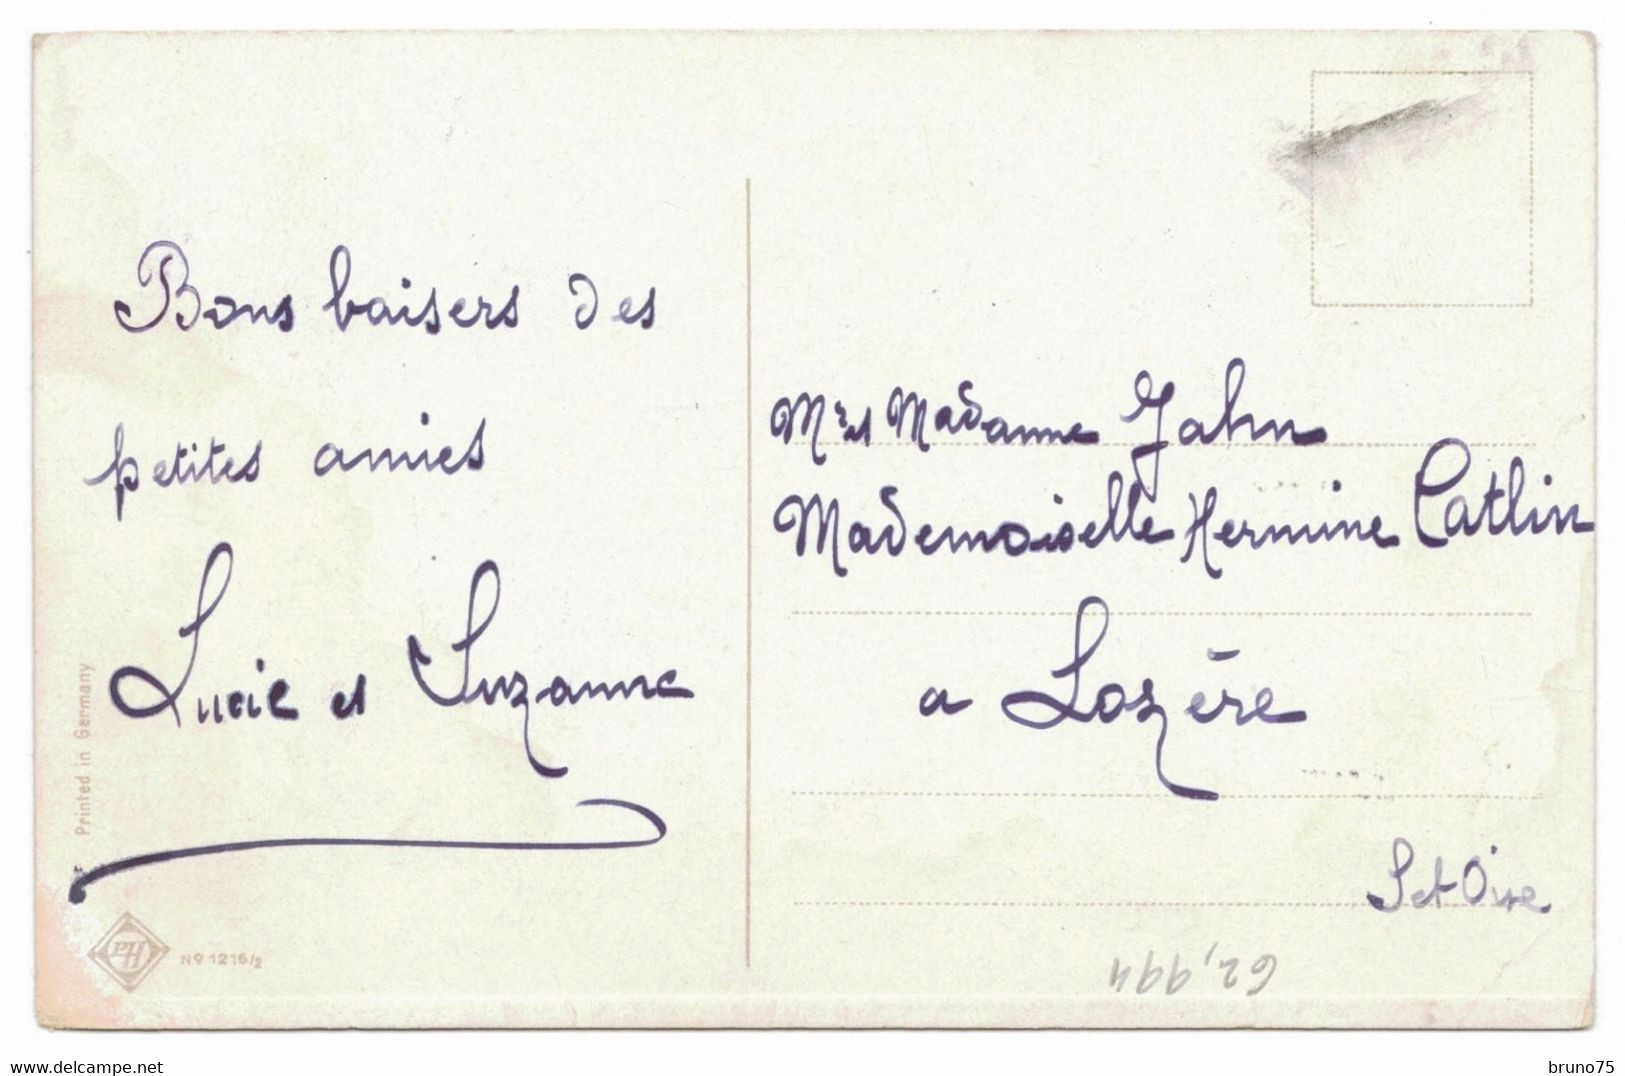 Bons baisers des
petites amies
Lucie et Suzanne
Mr et Madame Jahn
Mademoiselle Hermine Catlin
a Lozère
S et Oise
Printed in Germany
Nº 1216/2
62,994
delcampe.net
bruno75